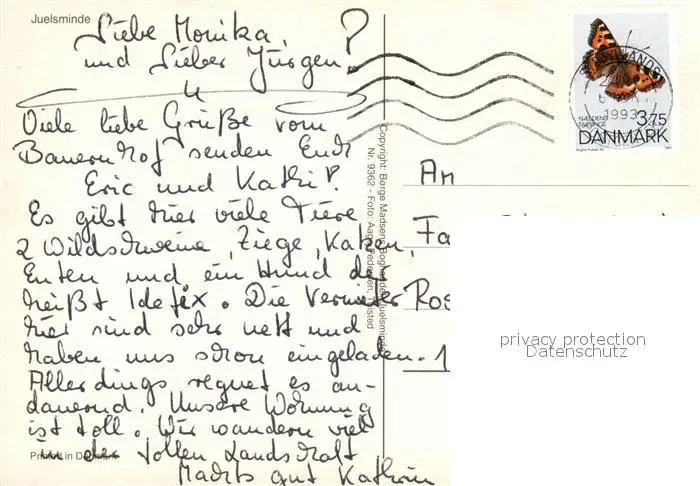 Juelsminde
Liebe Monika,
und Lieber Jürgen!
Viele liebe Grüße vom
Bauernhof senden Euch
Eric und Kathi!
Es gibt hier viele Tiere
2 Wildschweine, Ziege, Katzen,
Enten und ein Hund der
heißt Idefix. Die Vermieter
hier sind sehr nett und
haben uns schon eingeladen.
Allerdings regnet es an-
dauernd. Unsere Wohnung
ist toll. Wir wandern viel
in der tollen Landschaft
Machts gut Kathrin
Printed in Denmark
Copyright: Børge Madsens Boghandel, Juelsminde
Nr. 9362 - Foto: Aage Pedersen,
1993
NÆLDENS
TAKVINGE
3.75
DANMARK
An
Fa
Ros
1
privacy protection
Datenschutz